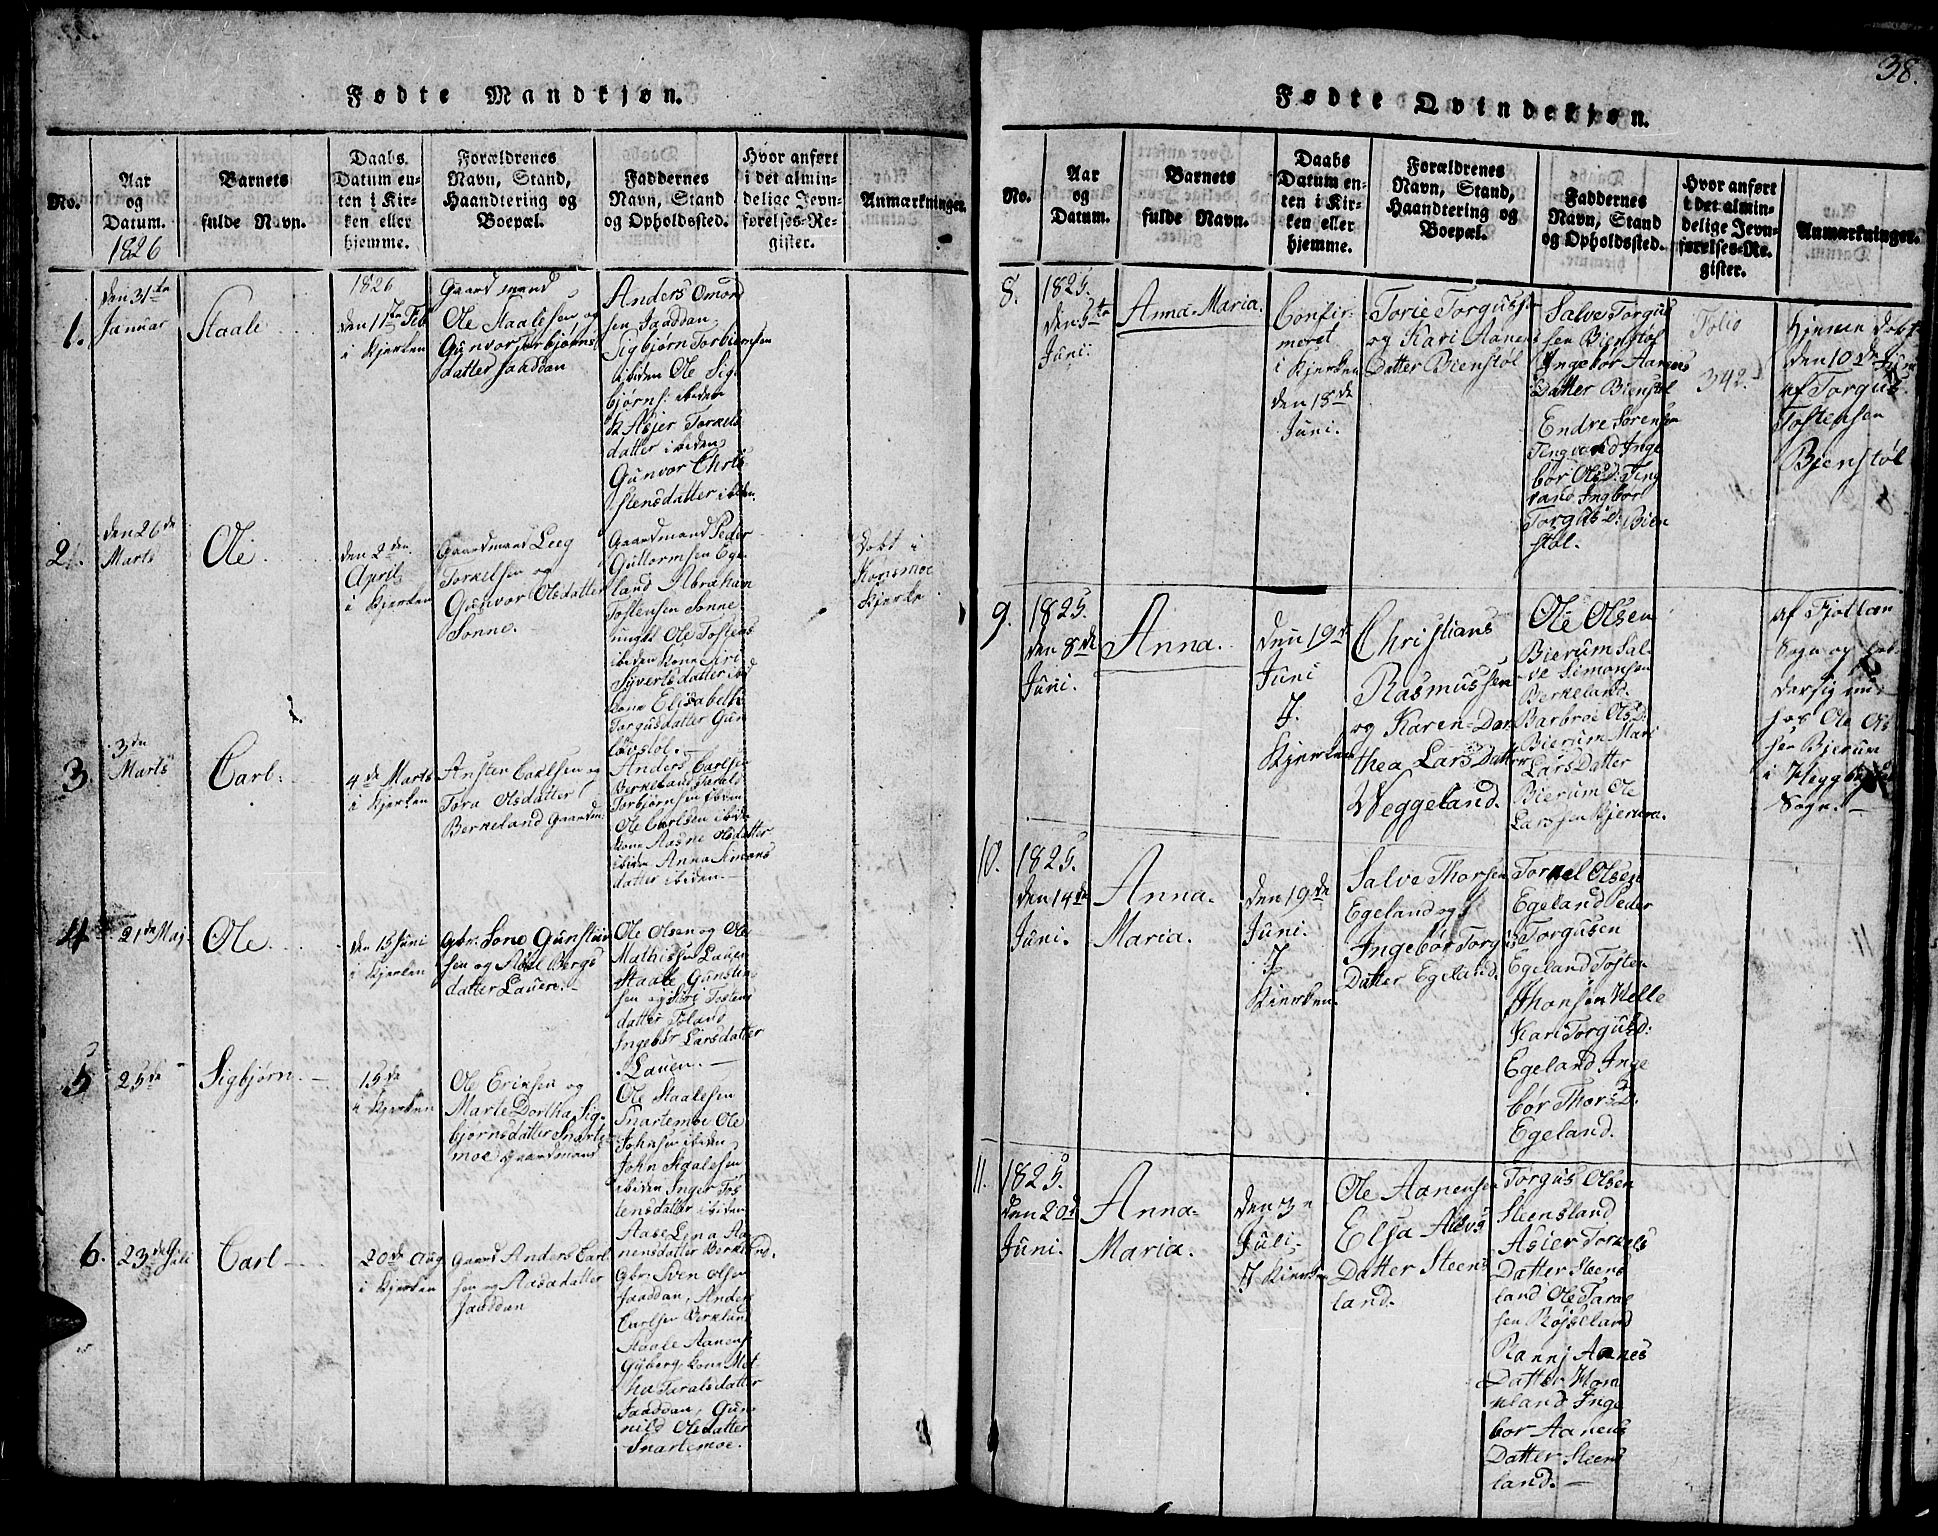 Fødte Mandkjøn.
No.
Aar
og
Datum.
1826
Barnets
fulde Navn.
Daabs-
Datum en-
ten i Kir-
ken eller
hjemme.
Forældrenes
Navn, Stand,
Haandtering og
Boepæl.
Faddernes
Navn, Stand
og Opholdssted.
Hvor anført
i det almin-
delige Jevn-
førelses-Re-
gister.
Anmærkninger.
1.
den 31te
Januar
Staale
1826
den 17de Feb
i Kjerken
Gaardmand
Ole Staalesen og
Gunvor Torbjørns
datter Jaaddan
Anders Omond
sen Jaaddan
Sigbjørn Torbiørnsen
ibiden Ole Sig-
bjørns: ibiden
Asjer Torkels
datter ibiden
Gunvor Chris
stensdatter ibiden
2.
den 26de
Marts
Ole
den 2den
April
i Kjerken
Gaardmand Leeg
Torkelsen og
Gunvor Olsdatter
Sonne.
Gaardmand Peder
Guttormsen Ege-
land Abraham
Tostensen Sonne
ungkl Ole Tostens
ibiden Kone Siri
Syvertsdatter ibd
Kone Elisabeth
Torgusdatter Gun
løvstol.
Døbt i
Konsmoe
Kjerke
3
3de
Marts
Carl.
4de Marts
i Kjerken
Ansten Carlsen og
Tora Olsdatter
Berkeland Gaardm:
Anders Carlsen
Berkeland Tarald
Torbjørnsen ibiden
Ole Carlsen ibide
Kone Aasne Olsdatter
ibiden Anna Simons
datter ibiden.
4
21de Maj
Ole.
den 15 Juni
i Kjerken
Gbr. Sone Gunstein
sen og Asel Bergs
datter Lauen.
Ole Olsen og Ole
Mathissen Lauen
Staale Gunsten
sen og Siri Tostens
datter Foland
Ingebor Larsdatter
Lauen.
5
25de
Sigbjørn.
15de
i Kjerken
Ole Eriksen og
Marte Dortha Sig-
bjørnsdatter Snarte
moe Gaardmand
Ole Staalesen
Snartemoe Ole
Johnsen ibiden
John Staalesen
ibiden Inger Tos
tensdatter ibiden
Aase Lena Aa-
nensdatter Berkland.
6.
23de Juli
Carl
20de Aug
i Kjerken
Gaard Anders Carl
sen og Aasadatter
Jaaddan
Gbr: Sven Olsen
Jaaddan, Anders
Carlsen Berkland
Staale Aanens
Gyberg, Kone Met-
ha Taralsdatter
Jaaddan, Gun-
nild Olsdatter
Snartemoe.
38.
Fødte Qvindekjøn.
No.
Aar
og
Datum.
Barnets
fulde Navn.
Daabs
Datum en-
ten i Kir-
ken eller
hjemme.
Forældrenes
Navn, Stand,
Haandtering og
Boepæl.
Faddernes
Navn, Stand
og Opholdssted.
Hvor anført
i det almin-
delige Jevn-
førelses-Re-
gister.
Anmærkninger.
8.
1825.
den 5te
Juni.
Anna-Maria.
Confir-
meret
i Kjerken
den 18de
Juni.
Torie Torgussen
og Kari Aanens
Datter Bienstøl
Salve Torgus
sen Bienstøl
Ingebor Aanens
Datter Bienstøl
Endre Sørensen
Tingvand Inge
bor Ols D: Ting
vand Ingbor
Torgus D: Bien
støl.
Folio
342.
Hjemme døbt
den 10de Juni
af Torgus
Tostensen
Bjenstøl
9.
1825.
den 8de
Juni.
Anna.
den 19de
Juni
I
Kjerken
Christians
Rasmussen
og Karen-Dor
thea Lars Datter
Weggeland.
Ole Olsen
Bierum Sal-
ve Simonsen
Berkeland.
Barbroe Ols D:
Bierum Mari
Lars Datter
Bierum Ole
Larssen Bjerum.
af Fjotlan
Sogn og
hos Ole Ol
sen Bjerum
i Hegge
Sogn.
10.
1825.
den 14de
Juni.
Anna
Maria.
den 19de
Juni.
I
Kierken.
Salve Thorsen
Egeland og
Ingebor Torgus
Datter Egeland.
Torkel Olsen
Egeland Peder
Torgusen
Egeland Tosten
Thorsen Helle
Kari Torgus D:
Egeland Inge
bor Thors D:
Egeland.
11.
1825.
den 20de
Juni.
Anna
Maria.
den 3
Juli
I Kierken
Ole Aanensen
Elsa Alevs
Datter Steens
land.
Torgus Olsen
Steensland
Asier Torkels
Datter Steens
land Ole Taral
sen Røjseland
Ranni Aanes
Datter Hom
neland Inge
bor Aanens
Datter Steens
land.